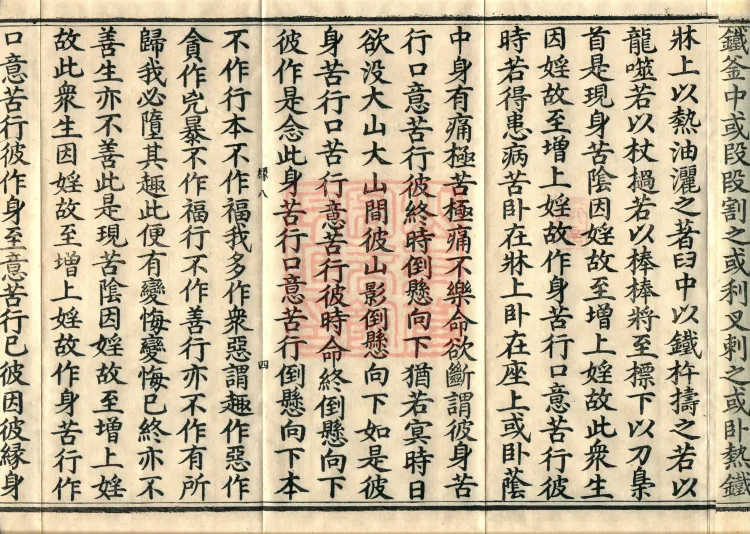 鐵釜中或段段割之或利叉刺之或卧熱鐵
牀上以熱油灑之著臼中以鐵杵擣之若以
龍噬若以杖撾若以棒棒將至標下以刀梟
首是現身苦陰因婬故至增上婬故此衆生
因婬故至增上婬故作身苦行口意苦行彼
時若得患病苦卧在牀上卧在座上或卧蔭
中身有痛極苦極痛不樂命欲斷謂彼身苦
行口意苦行彼終時倒懸向下猶若㝠時日
欲没大山大山間彼山影倒懸向下如是彼
身苦行口苦行意苦行彼時命終倒懸向下
彼作是念此身苦行口意苦行倒懸向下本
縁八 四
不作行本不作福我多作衆惡謂趣作惡作
貪作兇暴不作福行不作善行亦不作有所
歸我必隨其趣此便有變悔變悔已終亦不
善生亦不善此是現苦陰因婬故至增上婬
故此衆生因婬故至增上婬故作身苦行作
口意苦行彼作身至意苦行已彼因彼縁身